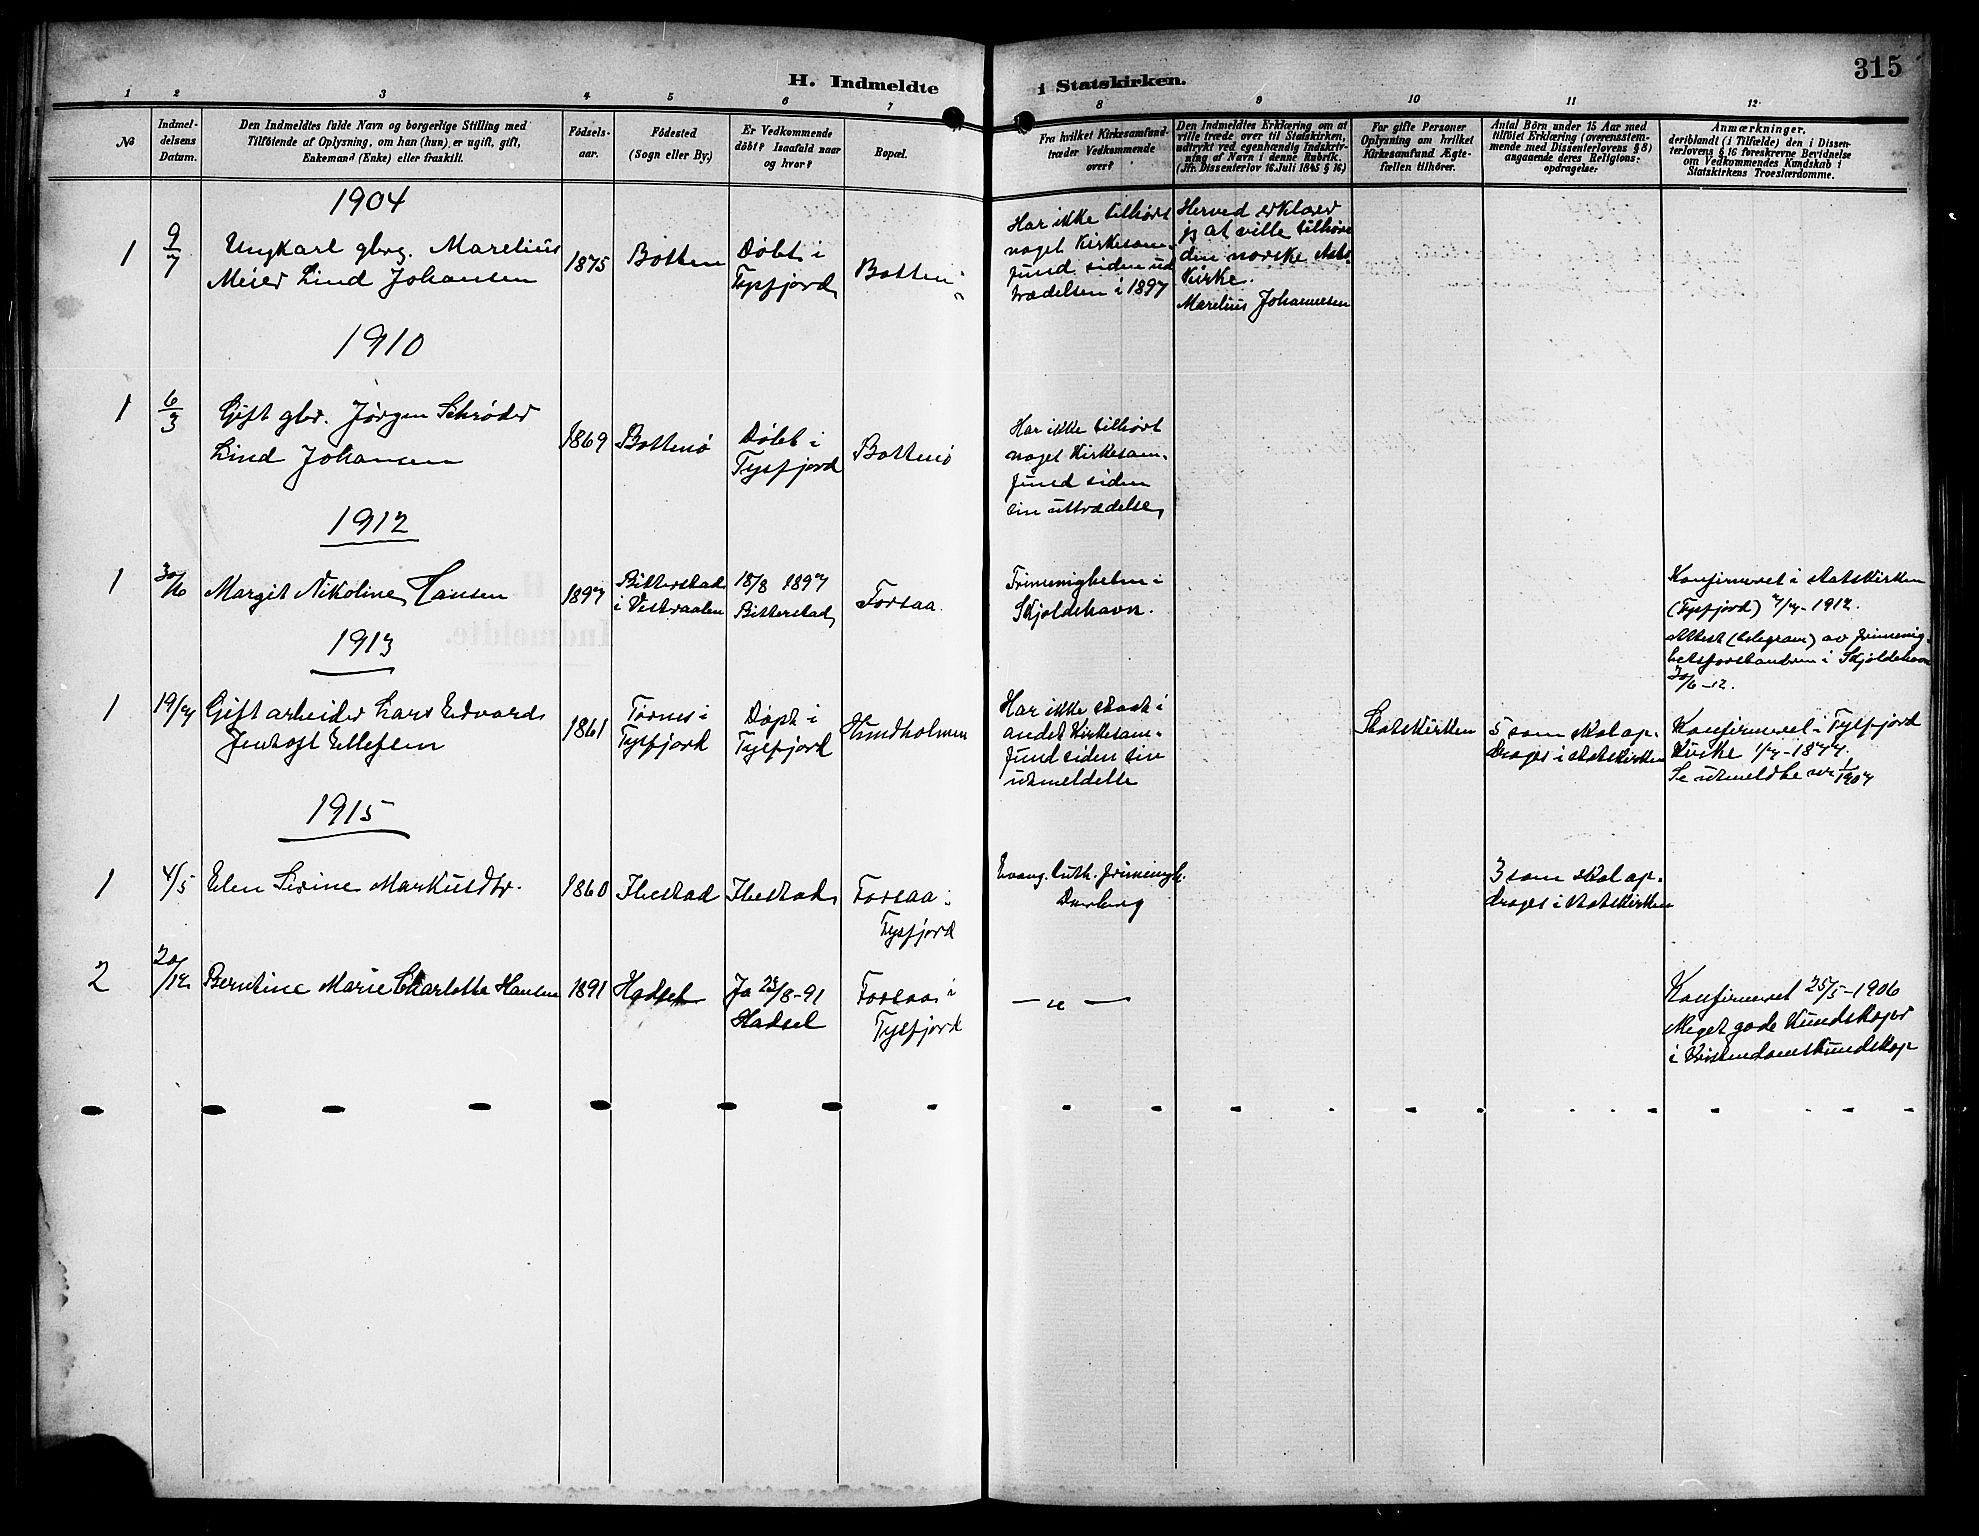 H. Indmeldte i Statskirken.
315
1 2 3 4 5 6 7 8 9 10 11 12
No
Indmel-
delsens
Datum.
Den Indmeldtes fulde Navn og borgerlige Stilling med
Tilføiende af Oplysning, om han (hun) er ugift, gift,
Enkemand (Enke) eller fraskilt.
Fødsels-
aar.
Fødested
(Sogn eller By.)
Er Vedkommende
døbt? Isaafald naar
og hvor?
Bopæl.
Fra hvilket Kirkesamfund
træder Vedkommende
over?
Den Indmeldtes Erklæring om at
ville træde over til Statskirken,
udtrykt ved egenhændig Indskriv-
ning af Navn i denne Rubrik.
(Jfr. Dissenterlov 16. Juli 1845 § 16)
For gifte Personer
Oplysning om hvilket
Kirkesamfund Ægte-
fællen tilhører.
Antal Børn under 15 Aar med
tilføiet Erklæring (overensstem-
mende med Dissenterlovens § 8)
angaaende deres Religions-
opdragelse.
Anmærkninger,
deriblandt (i Tilfælde) den i Dissen-
terlovens § 16 foreskrevne Bevidnelse
om Vedkommendes Kundskab i
Statskirkens Troeslærdomme.
1904
1
9/7
Ungkarl gbrg. Marelius
Meier Lind Johansen
1875
Botten
Døbt i
Tysfjord
Botten
Har ikke tilhørt
noget Kirkesam-
fund siden ud
trædelsen i 1897
Herved erklærer
jeg at ville tilhøre
den norske Stats-
Kirke.
Marelius Johannesen
1910
1
6/3
Gift gbr. Jørgen Schrøder
Lind Johansen
1869
Bottenø
Døbt i
Tysfjord
Bottenø
Har ikke tilhørt
noget Kirkesam-
fund siden
sin uttrædelse
1912
1
30/6
Margit Nikoline Hansen
1897
Bitterstad
i Vesteraalen
18/8 1897
Bitterstad
Forsaa
Frimenigheten i
Skjoldehavn.
Konfirmeret i statskirken
(Tysfjord) 7/7-1912.
Attest (telegram) av frimenig-
hetsforstanderen i Skjoldehavn
30/6-12.
1913
1
19/7
Gift arbeider Lars Edvard
Jentoft Ellefsen
1861
Tørnes i
Tysfjord
Døpt i
Tysfjord
Hundholmen
Har ikke staat i
andet Kirkesam-
fund siden sin
utmeldelse
Statskirken
5 som skal op-
drages i statskirken
Konfirmeret i Tysfjord
Kirke 1/7-1877.
Se utmeldte nr 1/1907
1915
1
4/5
Elen Serine Markusdtr.
1860
Ibestad
Ibestad
Forsaa i
Tysfjord
Evang. luth. frimenigh.
3 som skal op-
drages i statskirken
2
20/12
Berntine Marie Charlotte Hansen
1891
Hadsel
Ja 23/8-91
Hadsel
Forsaa i
Tysfjord
— " —
Konfirmeret 25/5-1906
Meget gode Kundskaper
i Kristendomskundskap